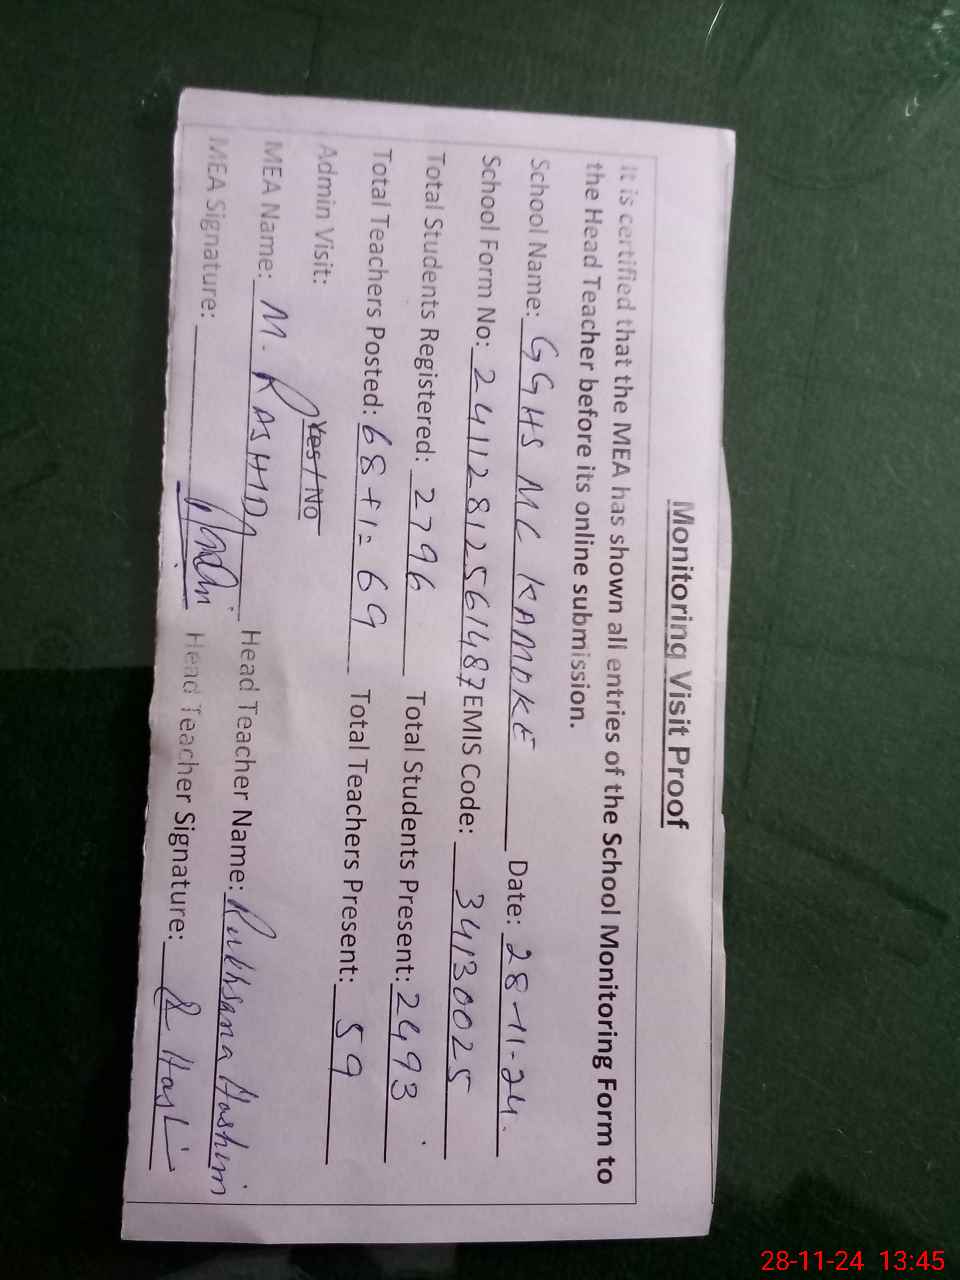 Monitoring Visit Proof
It is certified that the MEA has shown all entries of the School Monitoring Form to
the Head Teacher before its online submission.
School Name: GGHS MC KAMOKE Date: 28-11-24.
School Form No: 241128125661487 EMIS Code: 34130025
Total Students Registered: 2796 Total Students Present: 2493
Total Teachers Posted: 68+1=69 Total Teachers Present: 59
Admin Visit: Yes / No
MEA Name: M. RASHID Head Teacher Name: Rukhsana Hashim
MEA Signature: Head Teacher Signature:
28-11-24 13:45